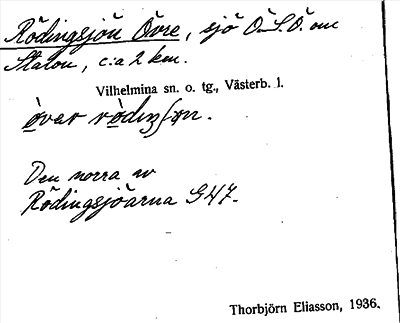 Rödingsjön Övre, sjö Ö.S.Ö. om
Stalon, c:a 2 km.
Vilhelmina sn. o. tg., Västerb. l.
Den norra av
Rödingsjöarna G47.
Thorbjörn Eliasson, 1936.